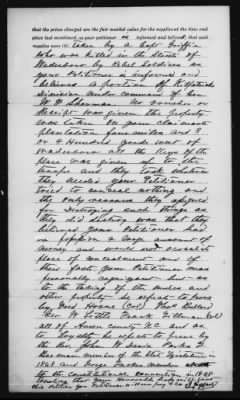 that the prices charged are the fair market value for the supplies at the time and
place last mentioned, as your petitioner is informed and believes; that said
supplies were taken by a Capt Griffin
who was killed in the Streets of
Wadesboro by Rebel Soldiers as
your Petitioner is informed and
believes a portion of Kilpatricks
Division under command of Gen
W. T. Sherman. No voucher or
Receipt was given the property
was taken from your claimants
plantation four miles and 3
or 4 Hundred yards west of
Wadesboro NC the Keys of the
place was given up to the
troops and they took whatever
they needed your Petitioner
tried to conceal nothing and
the only reasons they assigned
for destroying such things as
they did destroy was that they
believed your Petitioner had
in possession a large amount of
money and would not disclose the
place of concealment and of
these facts your Petitioner was
personally cognizant and as
to the taking of the mules and
other property he expects to prove
by
Geo. W. Little Frank Tillman (col)
all of Anson County N.C. and as
to Loyalty he expects to prove by
the Hon John W.
member of the State Legislature in
1868 and George
the Constitutional Convention in 1868